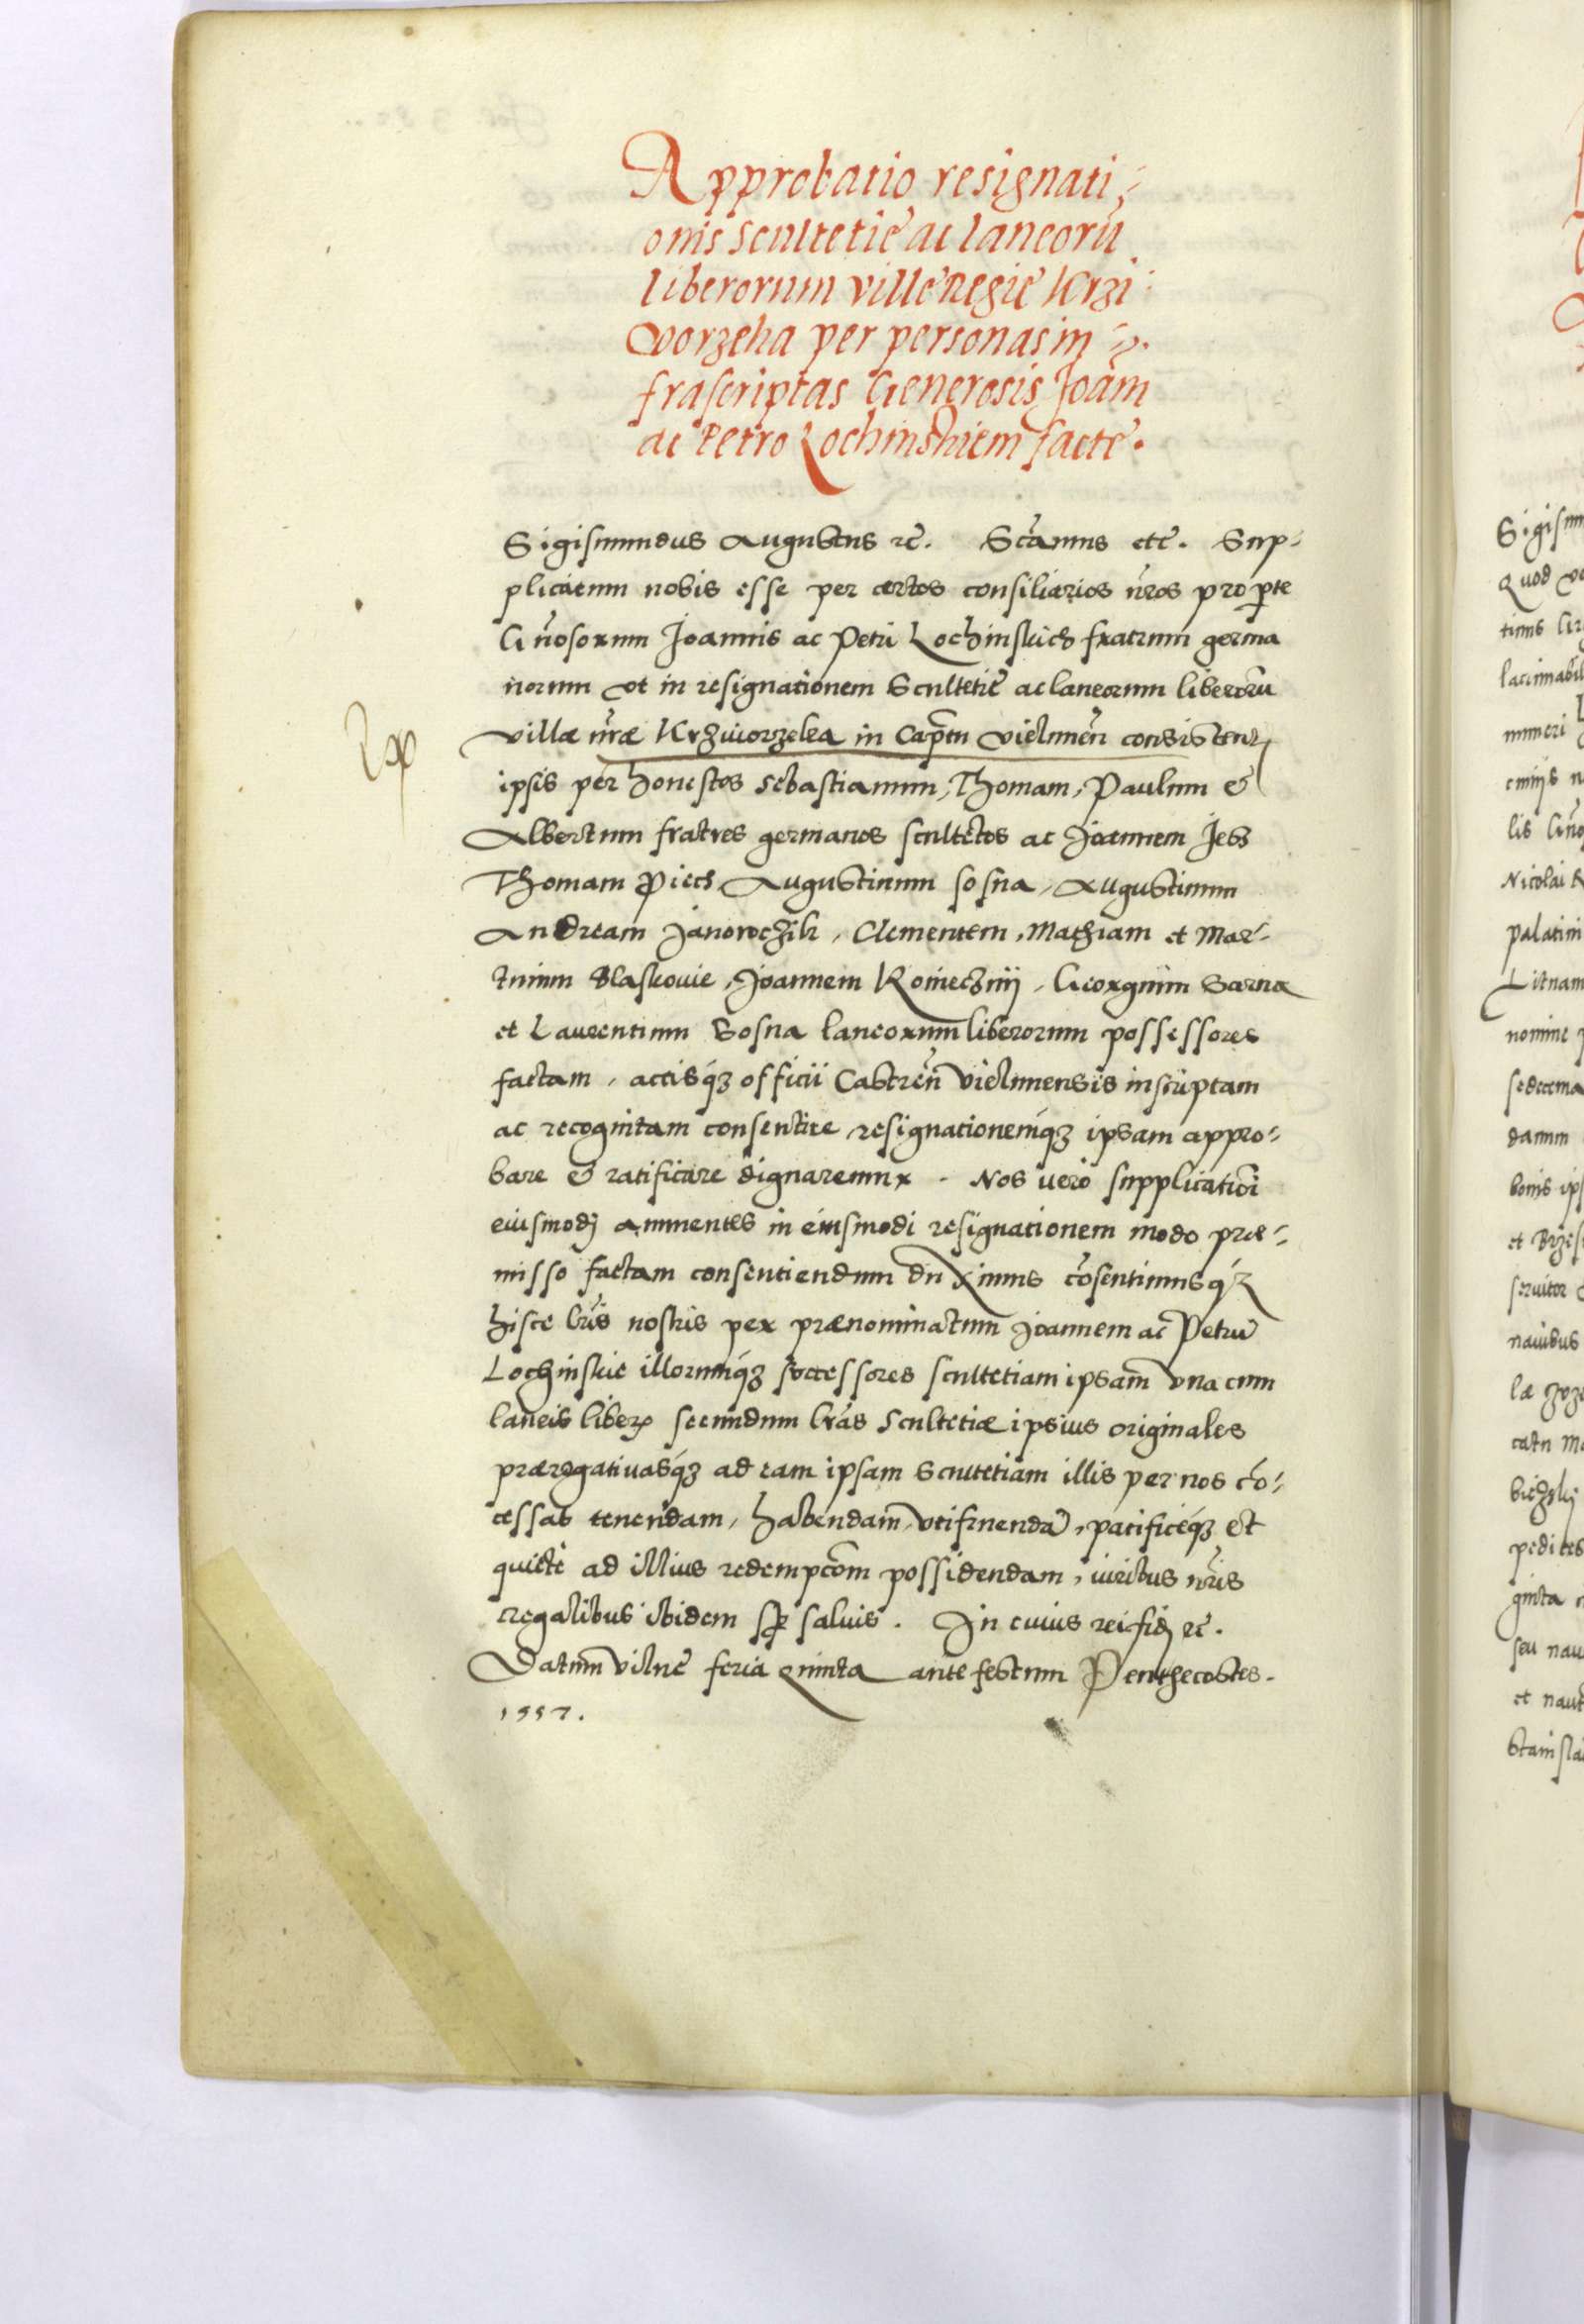 Approbatio resignati-
onis scultetię ac laneorū
liberorum villę Regię Krzi
worzeka per personas in-
frascriptas Generosis Joāni
ac Petro Lochinskiem factę.
Sigismundus Augustus rc̄. Scāmus etc̄. Sup-
plicatum nobis esse per certos consiliarios n̄ros pro pte
Gn̄osorum Joannis ac Petri Lochinskich fratrum germa
norum vt in resignationem Scultetię ac laneorum liberorū
villæ nr̄æ Krziworzeka in Cap̄tu Vielunen̄ consisten
ipsis per honestos Sebastianum, Thomam, Paulum &
Albertum fratres germanos scultetos ac Joannem Jeb
Thomam Piech Augustinum Sosna, Augustinum
Andream Janowczik, Clementem, Mathiam et Mar-
tinum Blaskowie, Joannem Koniecznij, Georgium Sarna
et Laurentium Sosna laneorum liberorum possessores
factam, actisq́ officii Castren̄ Vielunensis inscriptam
ac recognitam consentire resignationemq́ ipsam appro-
bare & ratificare dignaremur. Nos vero supplicationi
eiusmodj annuentes in eiusmodi resignationem modo præ-
misso factam consentiendum duximus cōsentimusq́
hisce lr̄is nostris per prænominatum Joannem ac Petrū
Lochinskie illorumq́ successores scultetiam ipsam vna cum
laneis liber secundum lr̄as Scultetiæ ipsius originales
prærogativasq́ ad eam ipsam Scultetiam illis per nos cō-
cessas tenendam, habendam, vtifruendā, pacificeq́ et
quietè ad illius redempcōm possidendam, iuribus nr̄is
regalibus ibidem sp̄ saluis. In cuius rei fid ec̄.
Datum Vilnę feria Quinta ante festum Penthecostes.
1557.